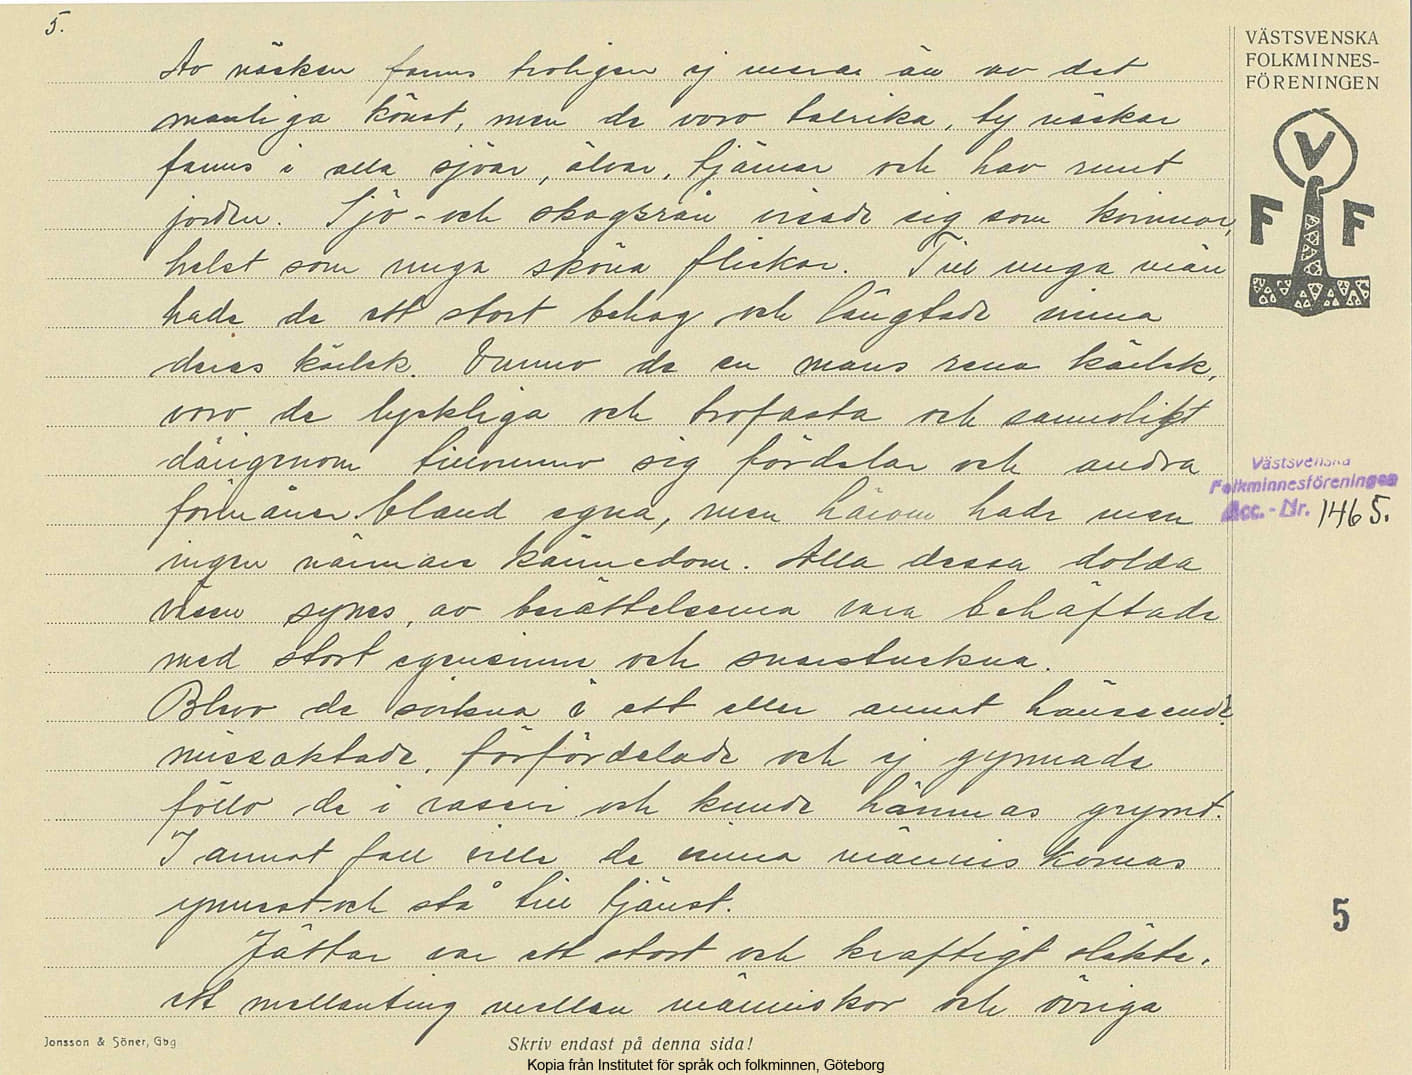 5.
Av näcken fanns troligen ej mera än av det
manliga könet, men de voro talrika, ty näckar
fanns i alla sjöar, älvar, tjärnar och hav runt
jorden. Sjö- och skogsrån visade sig som kvinnor,
helst som unga sköna flickor. Till unga män
hade de ett stort behag och längtade vinna
deras kärlek. Vunno de en mans rena kärlek,
voro de lyckliga och trofasta och sannolikt
därigenom tillvunno sig fördelar och andra
förmåner bland egna, men härom hade men
ingen närmare kännedom. Alla dessa dolda
väsen synes, av berättelserna vara behäftade
med stort egensinne och snarstuckna.
Blevo de svikna i ett eller annat hänseende
missaktade, förfördelade och ej gynnade
föllo de i raseri och kunde hämnas grymt.
I annat fall ville de vinna människornas
ynnest och stå till tjänst.
Jättar var ett stort och kraftigt släkte,
ett mellanting mellan människor och övriga
Jonsson & Söner, Gbg
Skriv endast på denna sida!
Kopia från Institutet för språk och folkminnen, Göteborg
VÄSTSVENSKA
FOLKMINNES-
FÖRENINGEN
V
F F
Västsvenska
Folkminnesföreningen
Acc. - Nr. 1465.
5